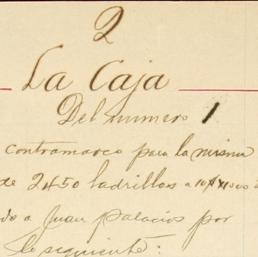 2
La Caja
Del numero 1
contramarco para la misma
de 2450 ladrillos a
a Juan Palacios por
lo siguiente: